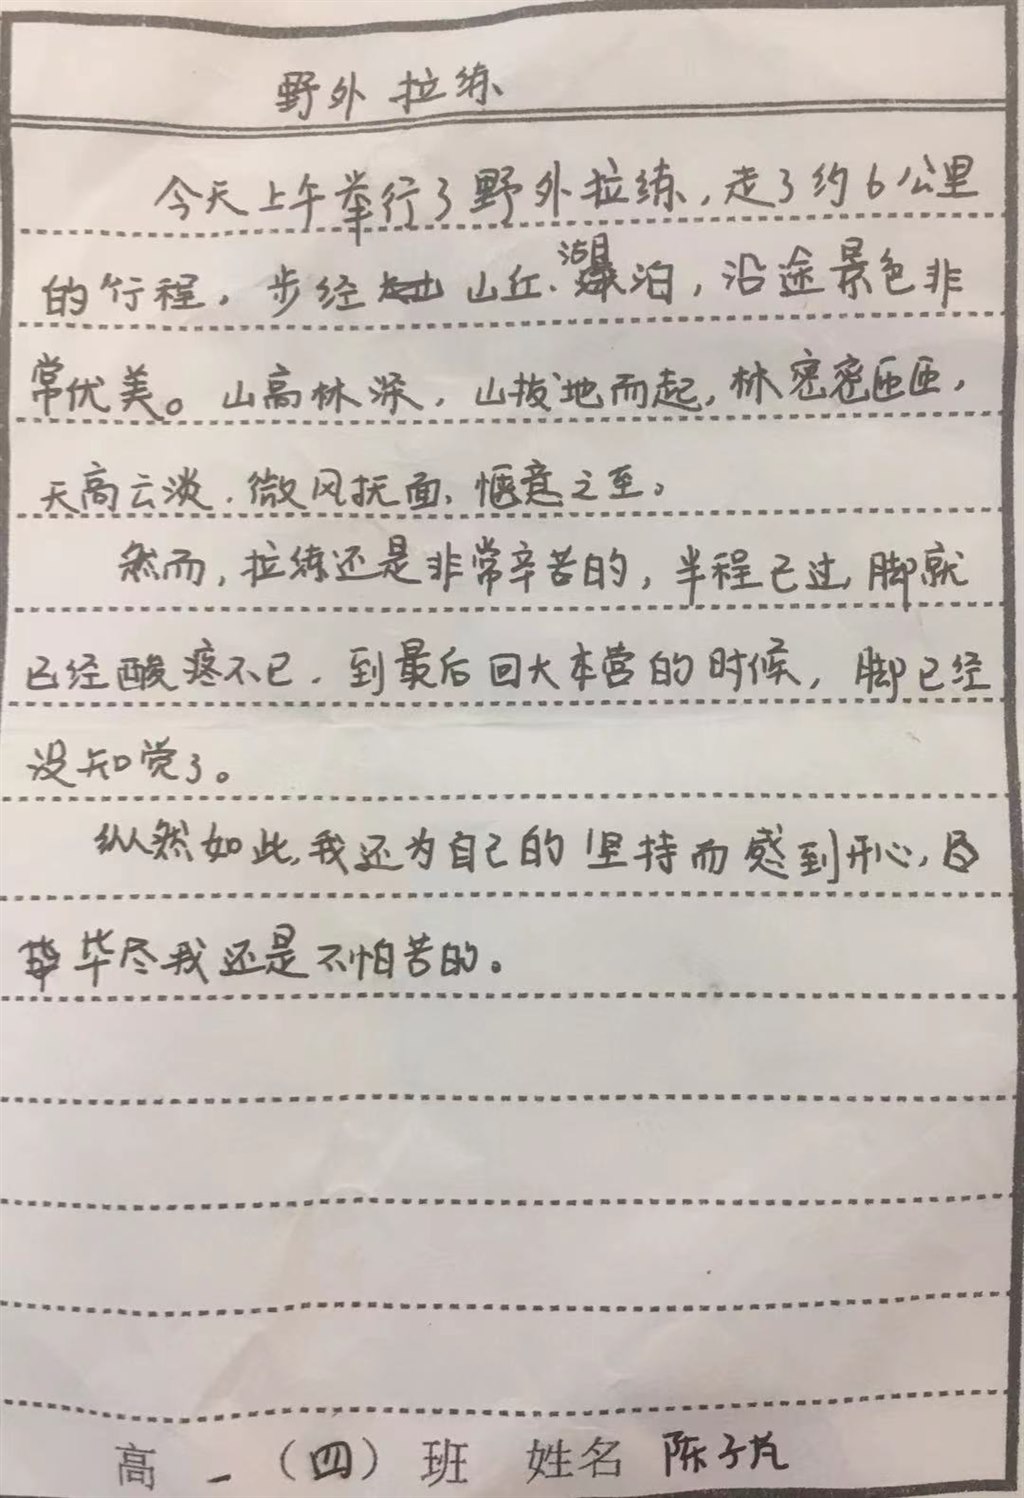 野外拉练
今天上午举行了野外拉练,走了约6公里
的行程,步经山丘、湖泊,沿途景色非
常优美。山高林深,山拔地而起,林密密匝匝,
天高云淡,微风抚面、惬意之至。
然而,拉练还是非常辛苦的,半程已过,脚就
已经酸疼不已,到最后回大本营的时候,脚已经
没知觉了。
纵然如此,我还为自己的坚持而感到开心,
毕尽我还是不怕苦的。
高一(四)班 姓名 陈子